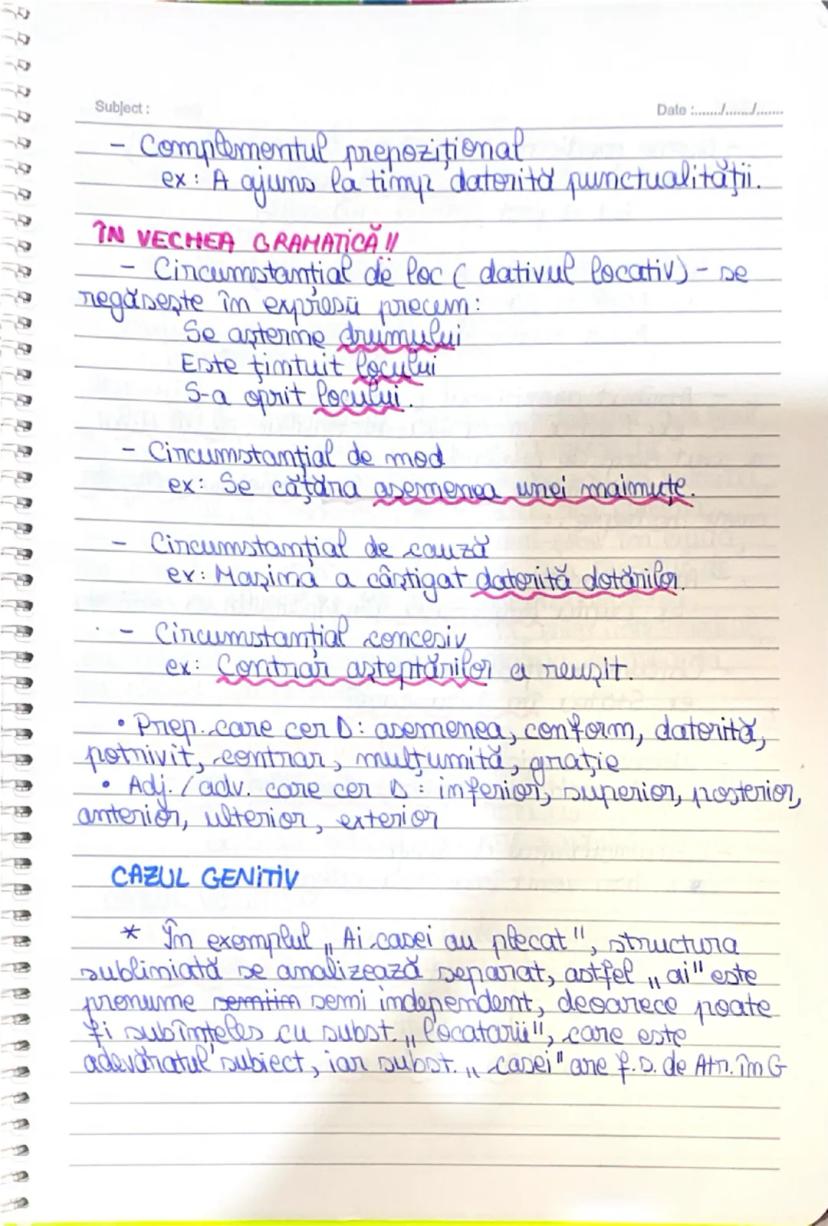 Subject :
Date :....../....../......
- Complementul prepozițional
ex: A ajuns la timp datorită punctualității.
ÎN VECHEA GRAMATICĂ!!
- Circumstanțial de loc ( dativul locativ) - se
regăsește în expresii precum:
Se așterne drumului
Este țintuit locului
S-a oprit locului.
- Circumstanțial de mod
ex: Se cățăra asemenea unei maimuțe.
- Circumstanțial de cauză
ex: Mașina a câștigat datorită dotărilor.
- Circumstanțial concesiv
ex: Contrar așteptărilor a reușit.
• Prep. care cer D: asemenea, conform, datorită,
potrivit, contrar, mulțumită, grație
• Adj. / adv. care cer D: inferior, superior, posterior,
anterior, ulterior, exterior
CAZUL GENITIV
* În exemplul „Ai casei au plecat", structura
subliniată se analizează separat, astfel „ai" este
pronume semi independent, deoarece poate
fi subînțeles cu subst. „locatarii", care este
adevăratul subiect, iar subst. „casei" are f.s. de Atr. în G